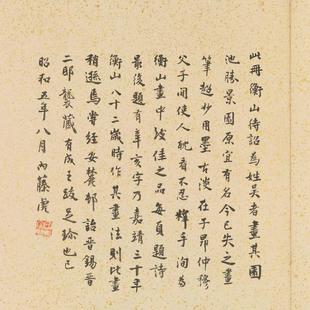 此冊衡山待詔為姓吴者畫其園
池勝景圖原宜有名今已失之畫
筆超妙用墨古淡在子昂仲穆
父子間使人耽看不忍釋手洵為
衡山畫中絶佳之品每頁題詩
最後題有辛亥字乃嘉靖三十年
衡山八十二歲時作其畫法則比畫
稍遜焉嘗經安麓邨諸晉錫晉
二郎襲藏有成王跋足珍也已
昭和五年八月内藤虎